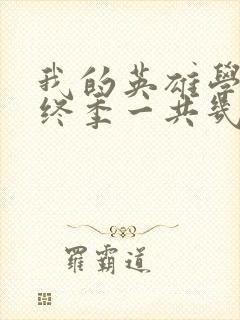 我的英雄學
终季一共幾
羅霸道